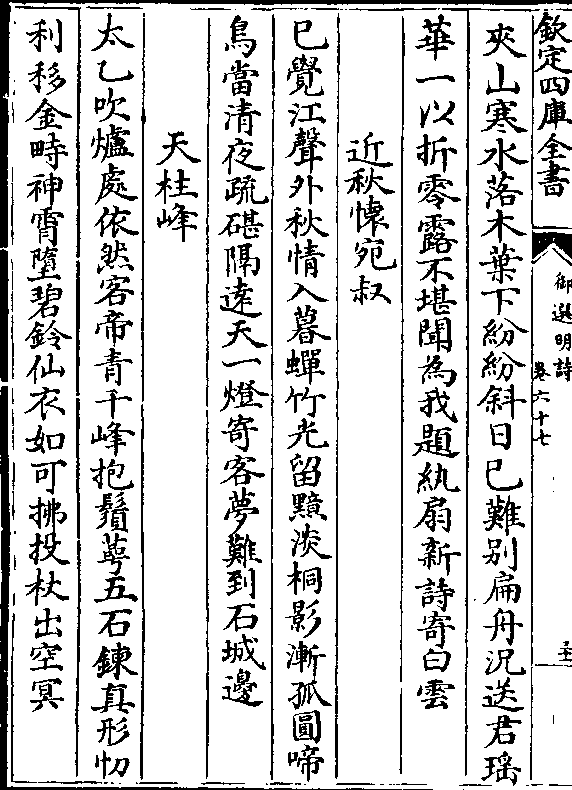 欽定四庫全書
御選明詩
卷六十七
夾山寒水落木葉下紛紛斜日已難别扁舟況送君瑶
華一以折零露不堪聞為我題紈扇新詩寄白雲
近秋懷宛叔
已覺江聲外秋情入暮蟬竹光留黯淡桐影漸孤圓啼
烏當清夜疏碪隔逺天一燈寄客夢難到石城邊
天柱峰
太乙吹爐處依然客帝青千峰抱鬚萼五石鍊真形忉
利移金畤神霄墮碧鈴仙衣如可拂投杖出空冥